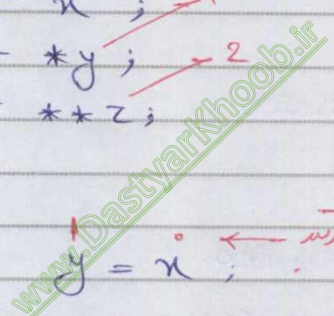 x ;
* y ; 2
* * z ;
y = x ;
www.DastyarKhoob.ir